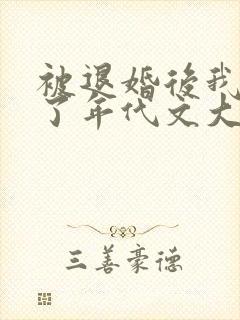 被退婚後我
了年代文大
三善豪德